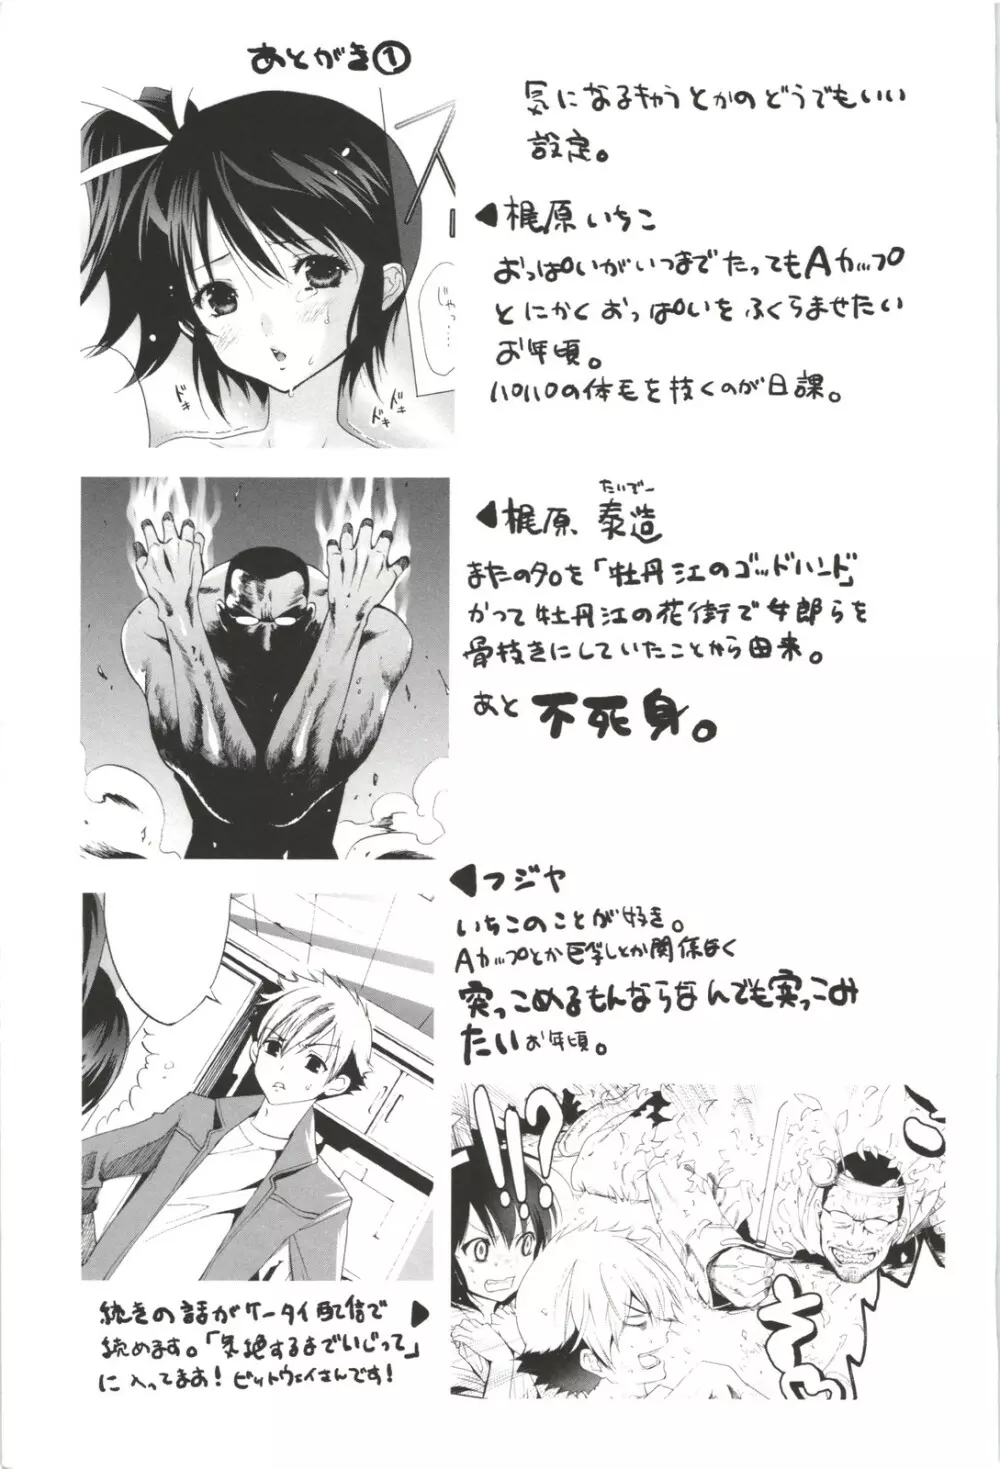 あとがき①
気になるキャラとかのどうでもいい
設定。
◀梶原いちこ
おっぱいがいつまでたってもAカップ
とにかくおっぱいをふくらませたい
お年頃。
パパの体毛を抜くのが日課。
じゃっ…
ドキ
ドキ
たいぞー
◀梶原 泰造
またの名を「牡丹江のゴッドハンド」
かつて牡丹江の花街で女郎らを
骨抜きにしていたことから由来。
あと 不死身。
◀フジヤ
いちこのことが好き。
Aカップとか巨乳とか関係なく
突っこめるもんならなんでも突っこみ
たいお年頃。
!!?
続きの話がケータイ配信で▶
続めます。「気絶するまでいじって」
に入ってます!ビットウェイさんです!